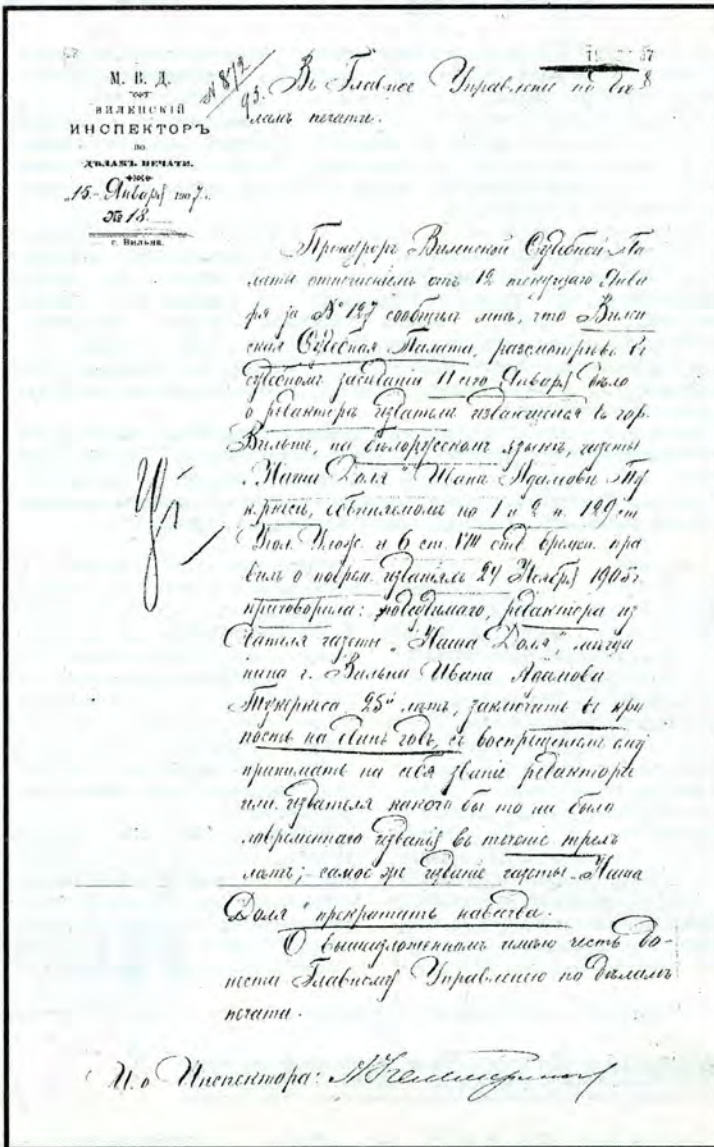 М. В. Д.
ВИЛЕНСКІЙ
ИНСПЕКТОРЪ
ПО
ДѢЛАМЪ ПЕЧАТИ.
15 Января 1907 г.
№ 18.
г. Вильна.
№ 812
93.
Въ Главное Управленіе по дѣ
ламъ печати.
Прокуроръ Виленской Судебной Па
латы отношеніемъ отъ 12 текущаго Янва
ря за № 127 сообщилъ мнѣ, что Вилен
ская Судебная Палата, разсмотрѣвъ въ
судебномъ засѣданіи 11 сего Января дѣло
о редакторѣ издателѣ издающейся въ гор.
Вильнѣ, на бѣлорусскомъ языкѣ, газеты
"Наша Доля" Иванѣ Адамовѣ Ту
керкесѣ, обвиняемомъ по 1 и 2 п. 129 ст.
Угол. Улож. и 6 ст. VIII отд. времен. пра
вилъ о поврем. изданіяхъ 24 Ноября 1905 г.
приговорила: подсудимаго, редактора из
дателя газеты "Наша Доля", мѣща
нина г. Вильны Ивана Адамова
Тукеркеса, 25 лѣтъ, заключить въ крѣ
пость на одинъ годъ, съ воспрещеніемъ ему
принимать на себя званіе редактора
или издателя какого бы то ни было
повременнаго изданія въ теченіе трехъ
лѣтъ; самое же изданіе газеты "Наша
Доля" прекратить навсегда.
О вышеизложенномъ имѣю честь до-
нести Главному Управленію по дѣламъ
печати.
И. о Инспектора: